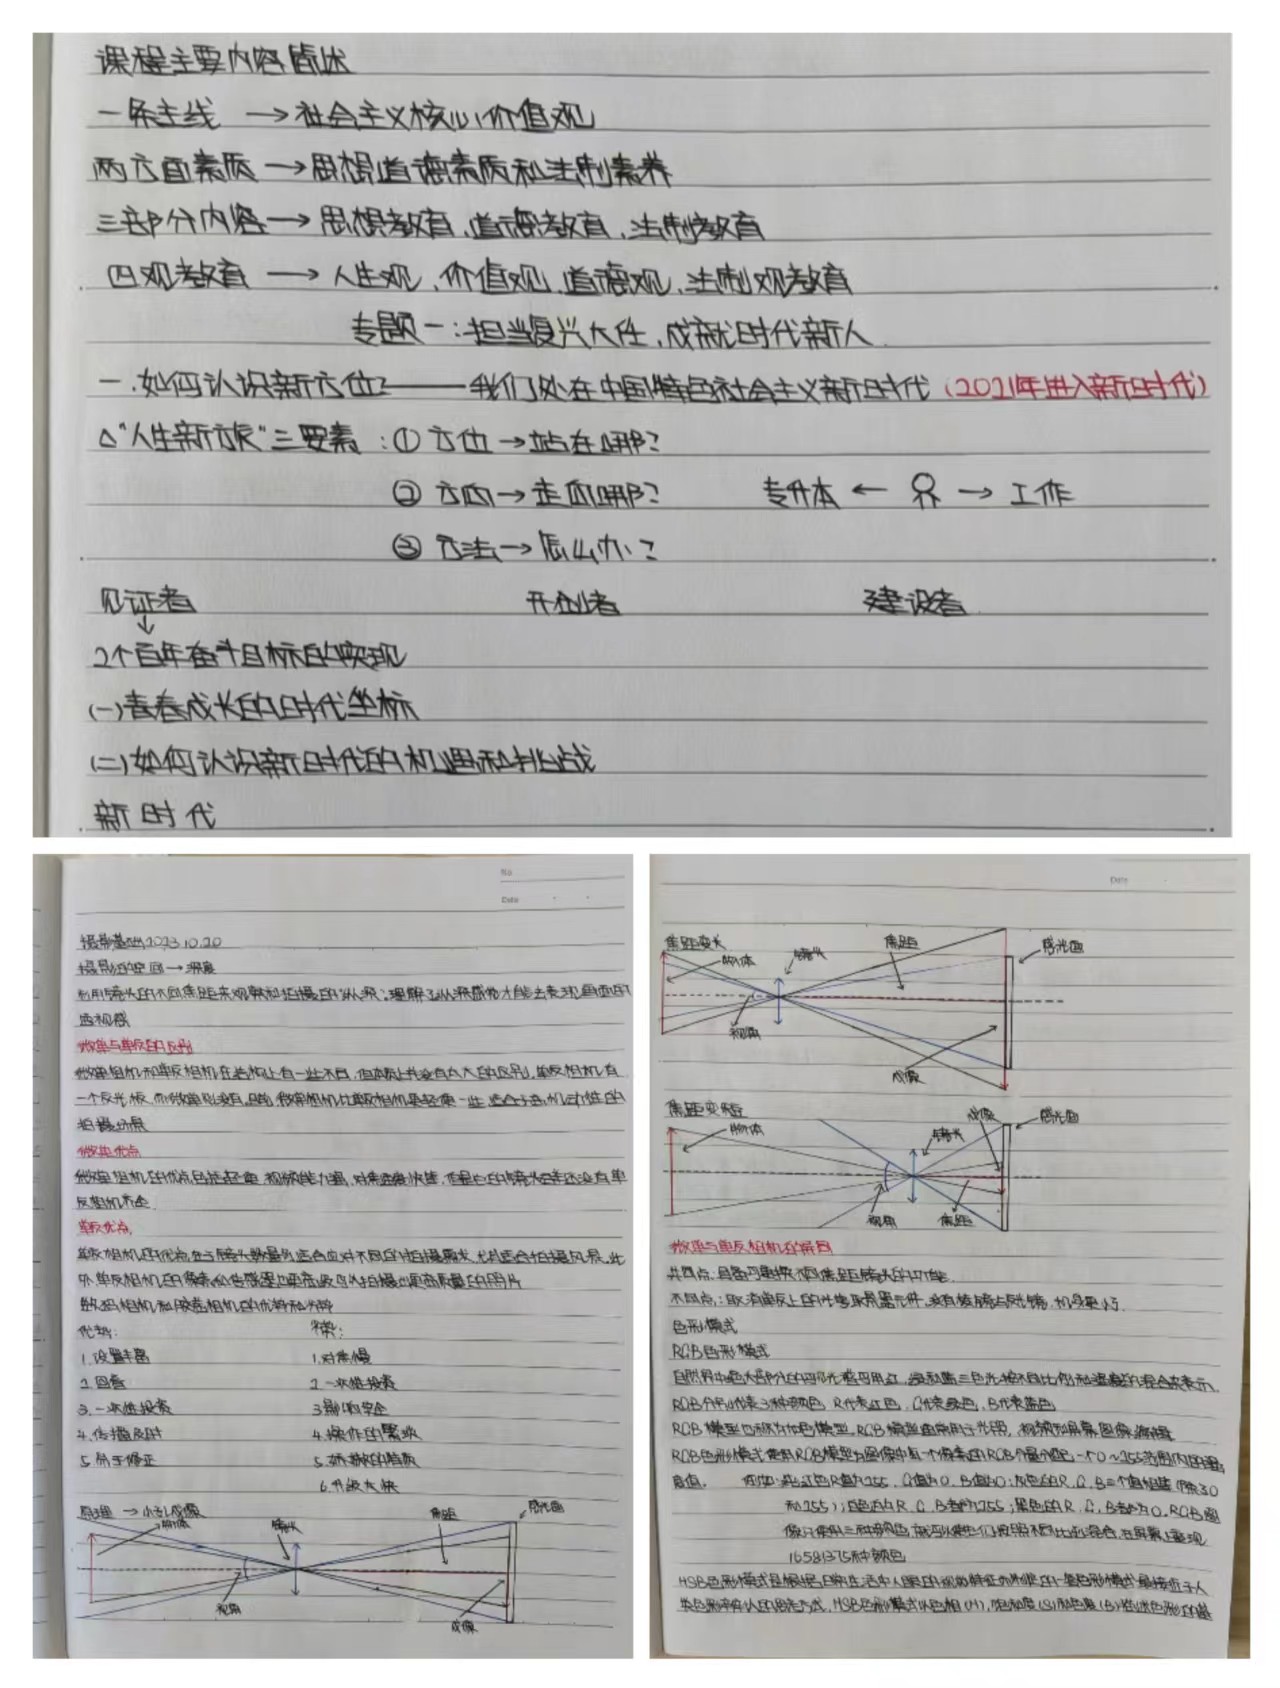 课程主要内容简述
一条主线 →社会主义核心价值观
两方面素质→思想道德素质和法制素养
三部分内容→思想教育、道德教育、法制教育
四观教育 → 人生观、价值观、道德观、法制观教育
专题一:担当复兴大任,成就时代新人
一.如何认识新方位?——我们处在中国特色社会主义新时代(2021年进入新时代)
△"人生新旅"三要素:① 方位→站在哪?
② 方向→走向哪? 专升本 ← → 工作
③ 方法→怎么办?
见证者 开创者 建设者
↓
2个百年奋斗目标的实现
(一)青春成长的时代坐标
(二)如何认识新时代的机遇和挑战
新时代
No
Date
摄影基础2023.10.20
摄影的空间→深度
利用镜头的不同焦距来观察和拍摄的纵深,理解了纵深感你才能去表现画面的
透视感
微单与单反的区别
微单相机和单反相机在结构上有一些不同,但本质上并没有太大的区别,单反相机有
一个反光板,而微单则没有,
拍摄场景
微单优点
微单相机的优点包括轻便,视频能力强,对焦速度快等,但是它的镜头
反相机齐全
单反优点
单反相机的优点在于镜头数量多,适合应对不同的拍摄需求,尤其适合拍摄风景,此
外单反相机的像素和传感器也更高级,可以拍摄出更高质量的照片
数码相机和胶卷相机的优势和劣势
优势: 劣势:
1.设置丰富 1.对焦慢
2.回看 2.一次性投资
3.一次性投资 3.影响安全
4.传播及时 4.操作的繁琐
5.易于修正 5.娇嫩的
6.升级太快
原理→小孔成像 物体 镜头 焦距 感光面
视角 成像
Date
焦距变长 物体 镜头 焦距 感光面
视角
成像
焦距变短 物体 镜头 成像 感光面
视角 焦距
微单与单反相机的
共同点:具备可更换不同焦距镜头的功能.
不同点:取消单反上的光学取景器元件,没有棱镜与反光镜,机身更小.
色彩模式
RGB色彩模式
自然界中绝大部分的可见光谱可用红、绿和蓝三色光按不同比例和强度的混合来表示.
RGB分别代表3种颜色,R代表红色,G代表绿色,B代表蓝色
RGB模型也称为加色模型,RGB模型通常用于光照、视频和屏幕图像编辑
RGB色彩模式使用RGB模型为图像中每一个像素的RGB分量分配一个0~255范围内的强
度值. 例如:纯红色R值为255,G值为0,B值为0;灰色的R、G、B三个值相等(除了0
和255);白色的R、G、B都为255;黑色的R、G、B都为0.RGB图
像只使用三种颜色,就可以使它们按照不同比例混合,在屏幕上重现
16581375种颜色
HSB色彩模式是根据日常生活中人眼的视觉特征而制定的一套色彩模式,最接近于人
类色彩辨认的思考方式,HSB色彩模式以色相(H),饱和度(S)和亮度(B)描述色彩的基